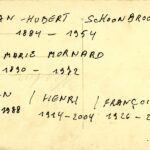 AN - HUBERT SCHOONBROO
1884 - 1954
MARIE MORNARD
1890 - 1972
N / HENRI / FRANÇO
1988 1914-2004 1926-2